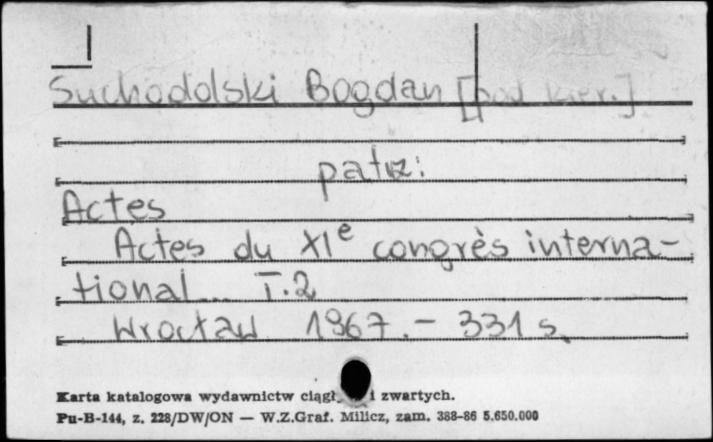 Suchodolski Bogdan [pod kier.]
patrz:
Actes
Actes du XIe congrès interna-
tional... T.2
Wrocław 1967.- 331 s.
Karta katalogowa wydawnictw ciągł. i zwartych.
Pu-B-144, z. 228/DW/ON — W.Z.Graf. Milicz, zam. 388-86 5.650.000